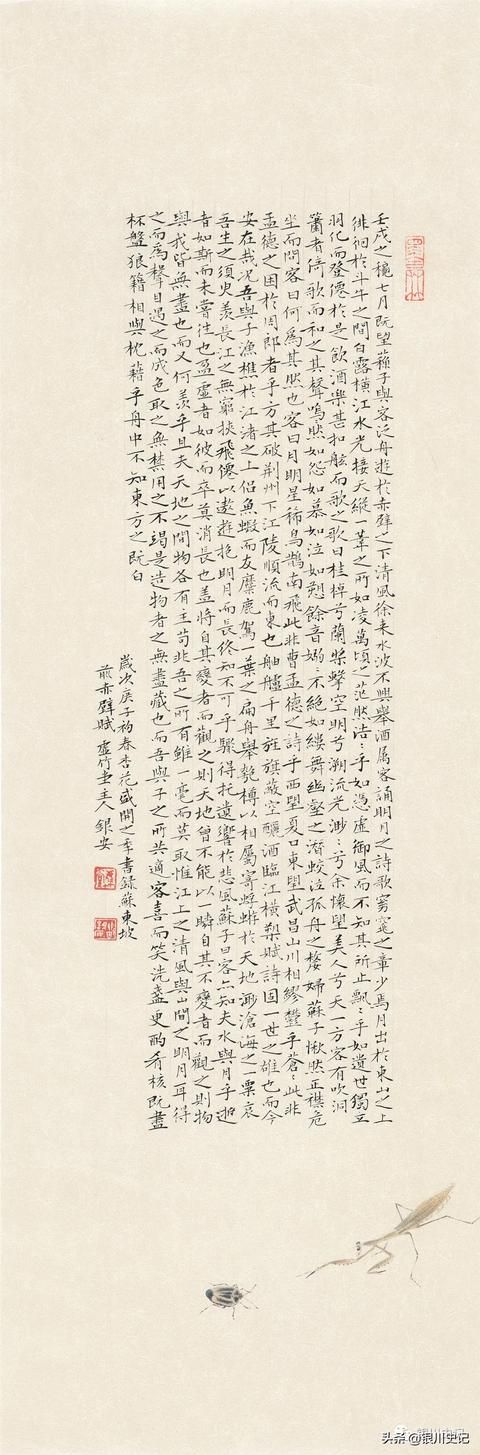 壬戌之穐七月既望蘇子與客泛舟遊於赤壁之下清風徐来水波不興舉酒属客誦明月之詩歌窈窕之章少焉月出於東山之上
徘徊於斗牛之間白露橫江水光接天縱一葦之所如凌萬頃之茫然浩〻乎如憑虛御風而不知其所止飄〻乎如遺世獨立
羽化而登僊於是飲酒樂甚扣舷而歌之歌曰桂棹兮蘭槳擊空明兮溯流光渺〻兮余懷望美人兮天一方客有吹洞
簫者倚歌而和之其聲嗚然如怨如慕如泣如愬餘音嫋〻不絕如縷舞幽壑之潛蛟泣孤舟之嫠婦蘇子愀然正襟危
坐而問客曰何為其然也客曰月明星稀烏鵲南飛此非曹孟德之詩乎西望夏口東望武昌山川相繆鬱乎蒼〻此非
孟德之困於周郎者乎方其破荆州下江陵順流而東也舳艫千里旌旗蔽空釃酒臨江橫槊賦詩固一世之雄也而今
安在哉況吾與子漁樵於江渚之上侶魚蝦而友麋鹿駕一葉之扁舟舉匏樽以相屬寄蜉蝣於天地渺滄海之一粟哀
吾生之須臾羨長江之無窮挾飛僊以遨遊抱明月而長終知不可乎驟得托遺響於悲風蘇子曰客亦知夫水與月乎逝
者如斯而未嘗往也盈虛者如彼而卒莫消長也盖將自其變者而觀之則天地曾不能以一瞬自其不變者而觀之則物
與我皆無盡也而又何羨乎且夫天地之間物各有主苟非吾之所有雖一毫而莫取惟江上之清風與山間之明月耳得
之而為聲目遇之而成色取之無禁用之不竭是造物者之無盡藏也而吾與子之所共適客喜而笑洗盞更酌肴核既盡
杯盤狼籍相與枕藉乎舟中不知東方之既白
歲次庚子初春杏花盛開之季書録蘇東坡
前赤壁賦虛竹堂主人銀安
银川史记
头条@银川史记